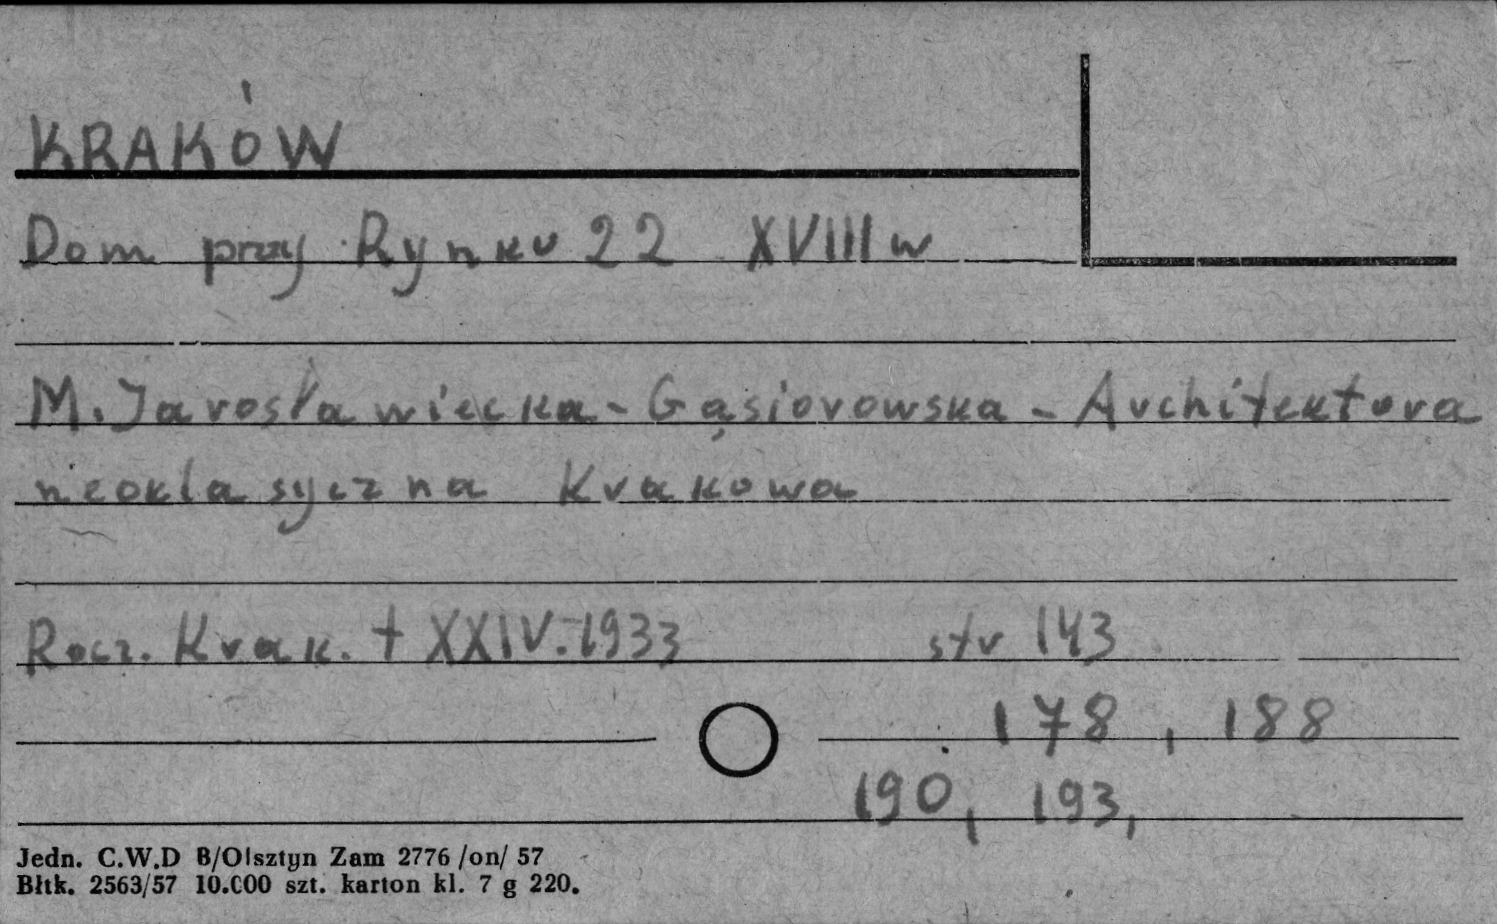 KRAKÓW
Dom przy Rynku 22 XVIII w
M. Jarosławiecka-Gąsiorowska - Architektura
neoklasyczna Krakowa
Rocz. Krak. t XXIV. 1933 str 143
178, 188
190, 193,
Jedn. C.W.D B/Olsztyn Zam 2776 /on/ 57
Błtk. 2563/57 10.000 szt. karton kl. 7 g 220.